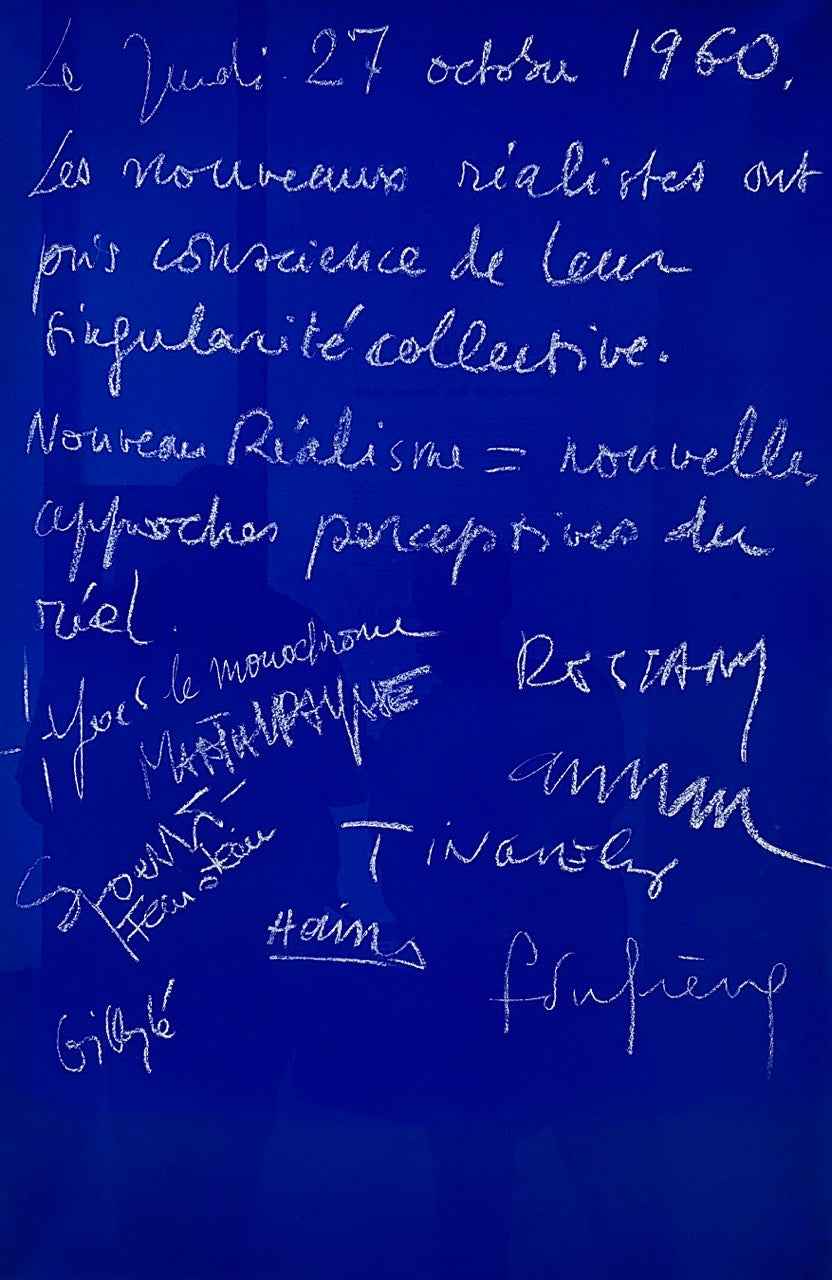 Le Jeudi 27 octobre 1960.
Les nouveaux réalistes ont
pris conscience de leur
singularité collective.
Nouveau Réalisme = nouvelles
approches perceptives du
réel.
Yves le monochrome
RESTANY
MARTIAL RAYSSE
arman
Spoerri
TINGUELY
Hains
Dufrêne
Villeglé